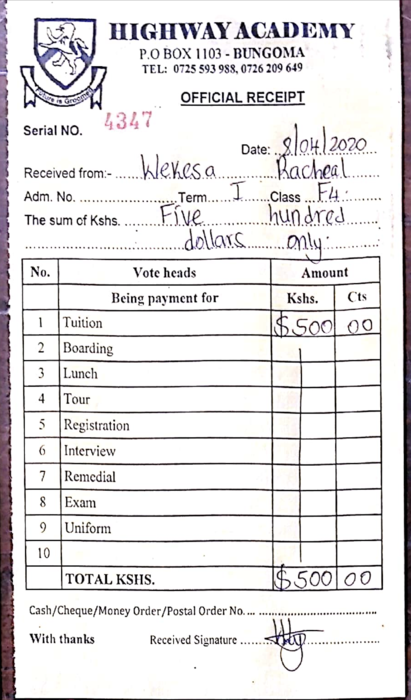 HIGHWAY ACADEMY
P.O BOX 1103 - BUNGOMA
TEL: 0725 593 988, 0726 209 649
OFFICIAL RECEIPT
Serial NO. 4347
Date: 8/04/2020
Received from:- Wekesa Racheal
Adm. No. Term I Class F4.
The sum of Kshs. Five hundred
dollars only.
No. Vote heads Amount
Being payment for Kshs. Cts
1 Tuition $500 00
2 Boarding
3 Lunch
4 Tour
5 Registration
6 Interview
7 Remedial
8 Exam
9 Uniform
10
TOTAL KSHS. $500 00
Cash/Cheque/Money Order/Postal Order No.
With thanks Received Signature